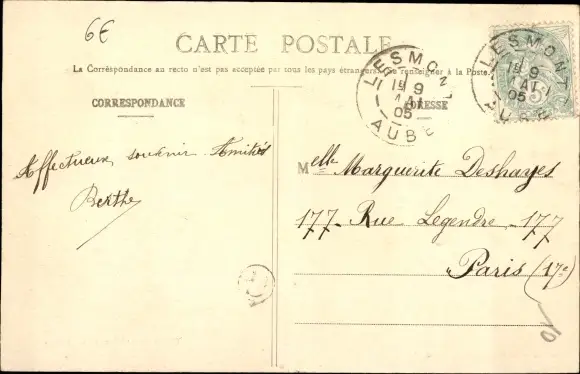 6€
CARTE POSTALE
La Correspondance au recto n'est pas acceptée par tous les pays étrangers. Se renseigner à la Poste.
CORRESPONDANCE
ADRESSE
LESMONT
19
MAI
05
AUBE
LESMONT
19
MAI
05
AUBE
Affectueux souvenir Amitiés
Berthe
Melle Marguerite Deshayes
177 - Rue Legendre - 177
Paris (17e)